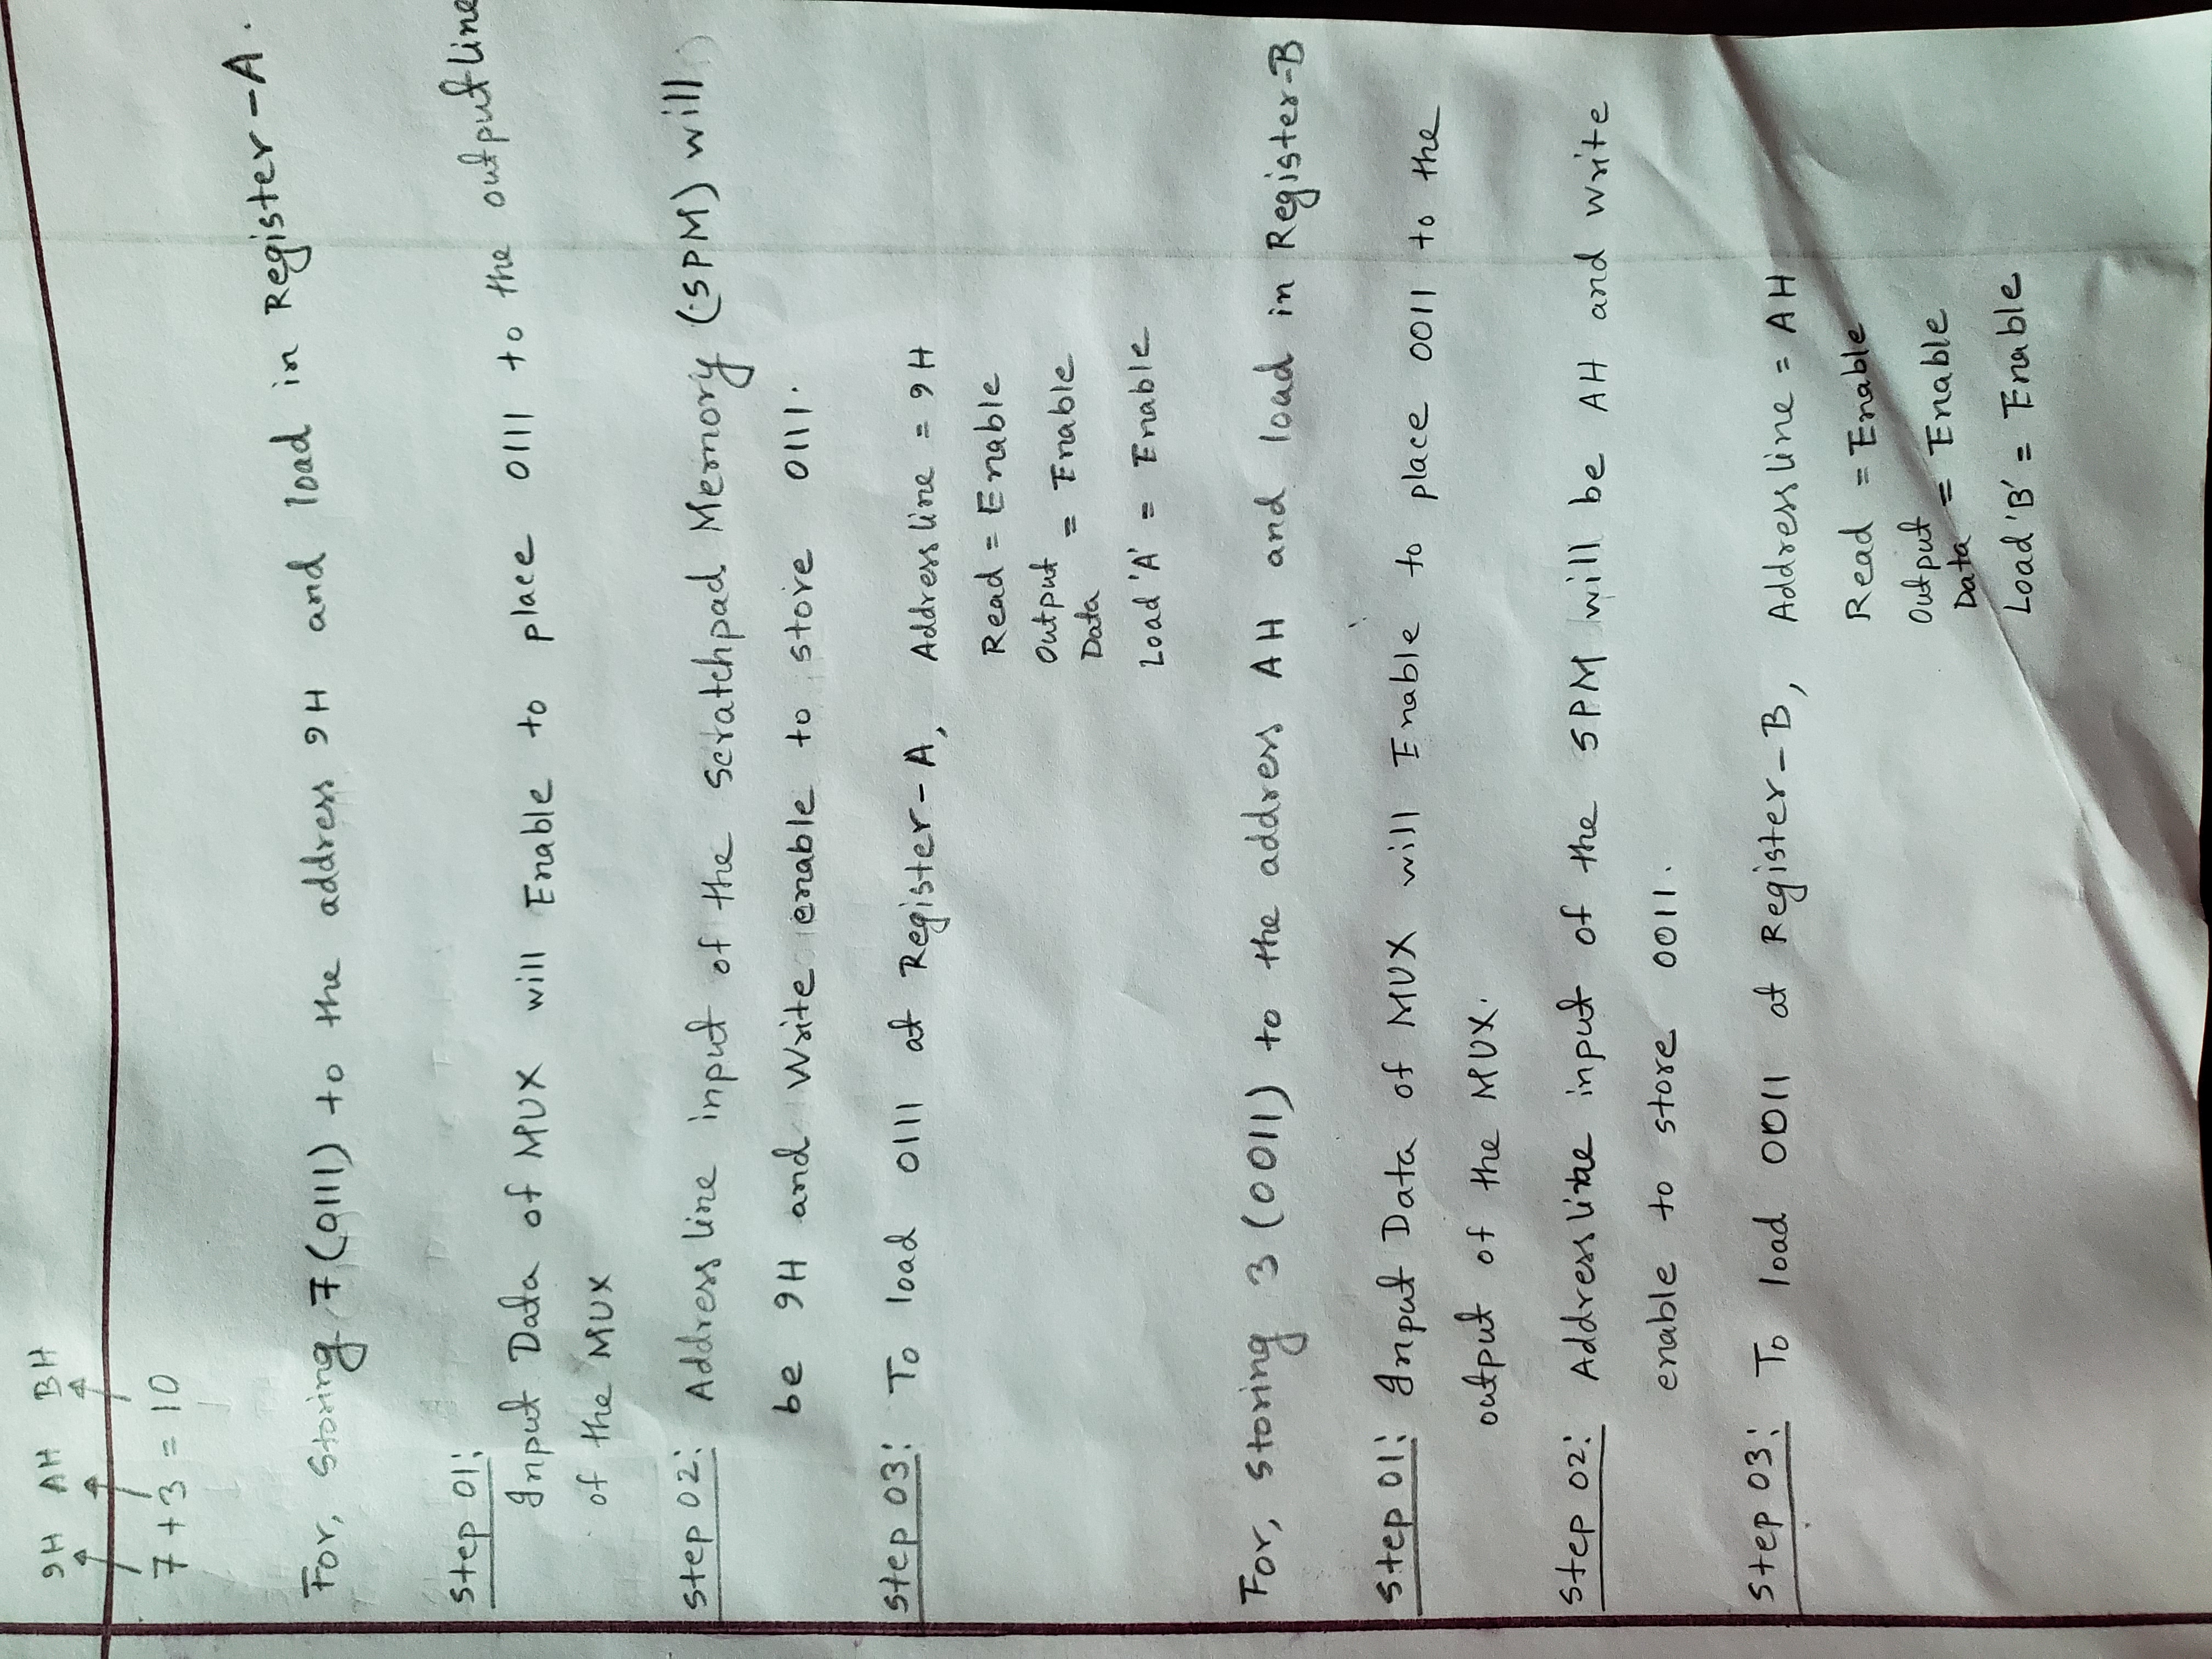 9H AH BH
7 + 3 = 10
For, Storing 7 (0111) to the address 9H and load in Register-A.
Step 01:
Input Data of MUX will Enable to place 0111 to the output line
of the MUX
Step 02: Address line input of the Scratchpad Memory (SPM) will
be 9H and Write enable to store 0111.
Step 03: To load 0111 at Register-A, Address line = 9H
Read = Enable
Output Data = Enable
Load 'A' = Enable
For, Storing 3 (0011) to the address AH and load in Register-B
Step 01: Input Data of MUX will Enable to place 0011 to the
output of the MUX.
Step 02: Address line input of the SPM will be AH and Write
enable to store 0011.
Step 03: To load 0011 at Register-B, Address line = AH
Read = Enable
Output Data = Enable
Load 'B' = Enable